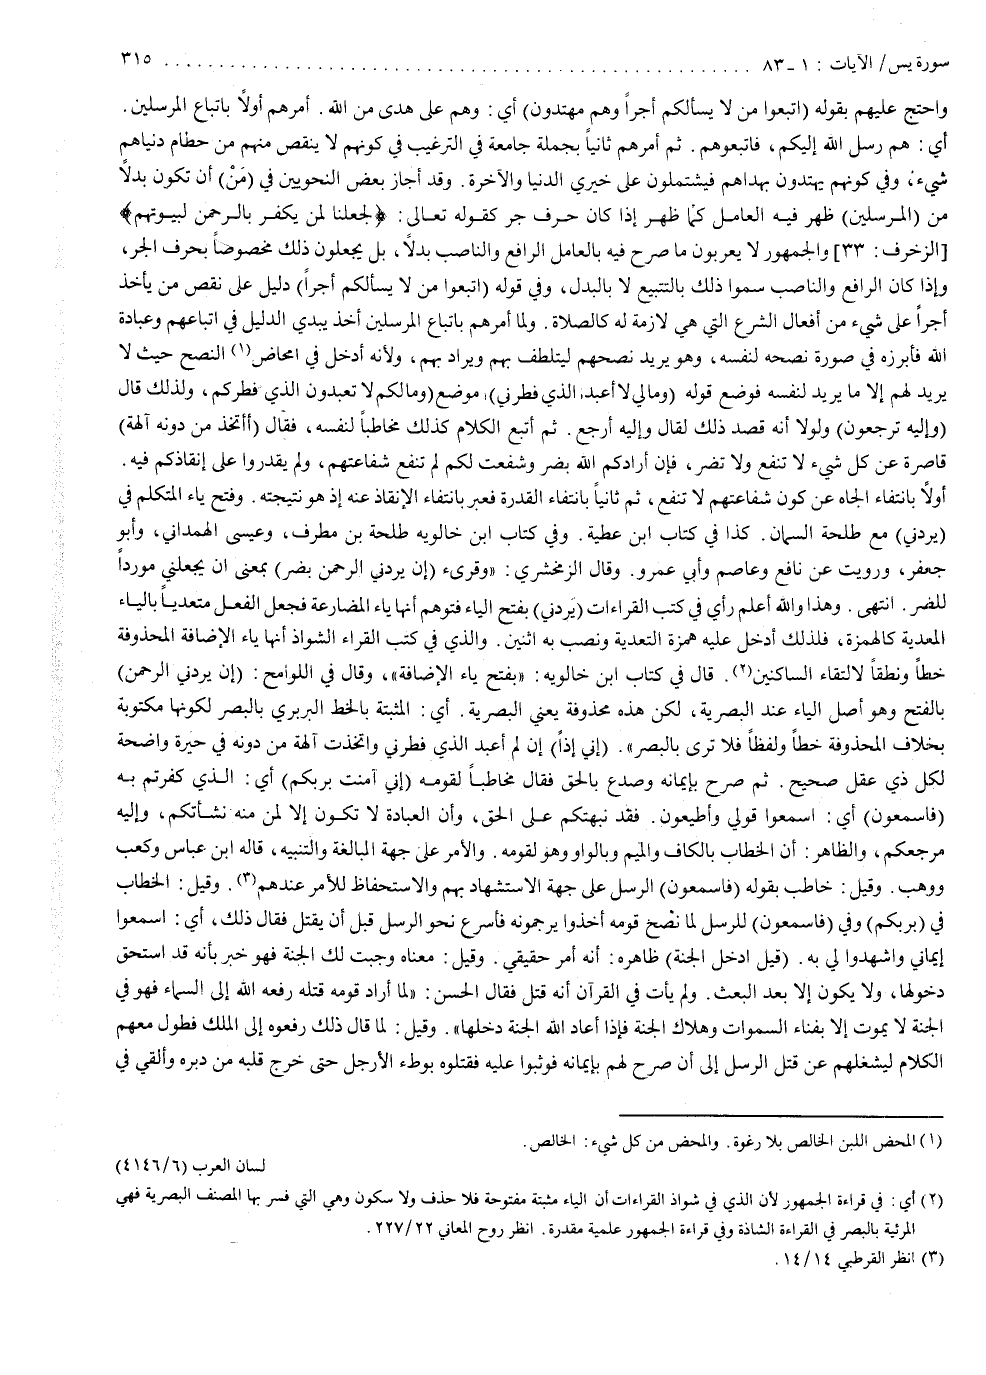 سورة يس/ الآيات : ١ ـ ٨٣ . . . . . . . . . . . . . . . . . . . . . . . . . . . . . . . . . . . . . . . . . . . . . . . . ٣١٥
واحتج عليهم بقوله (اتبعوا من لا يسألكم أجراً وهم مهتدون) أي : وهم على هدى من الله . أمرهم أولاً باتباع المرسلين .
أي : هم رسل الله إليكم ، فاتبعوهم . ثم أمرهم ثانياً بجملة جامعة في الترغيب في كونهم لا ينقص منهم من حطام دنياهم
شيء ، وفي كونهم يهتدون بهداهم فيشتملون على خيري الدنيا والآخرة . وقد أجاز بعض النحويين في (مَنْ) أن تكون بدلاً
من (المرسلين) ظهر فيه العامل كما ظهر إذا كان حرف جر كقوله تعالى : ﴿لجعلنا لمن يكفر بالرحمن لبيوتهم﴾
[الزخرف : ٣٣] والجمهور لا يعربون ما صرح فيه بالعامل الرافع والناصب بدلاً ، بل يجعلون ذلك مخصوصاً بحرف الجر ،
وإذا كان الرافع والناصب سموا ذلك بالتتبيع لا بالبدل ، وفي قوله (اتبعوا من لا يسألكم أجراً) دليل على نقص من يأخذ
أجراً على شيء من أفعال الشرع التي هي لازمة له كالصلاة . ولما أمرهم باتباع المرسلين أخذ يبدي الدليل في اتباعهم وعبادة
الله فأبرزه في صورة نصحه لنفسه ، وهو يريد نصحهم ليتلطف بهم ويراد بهم ، ولأنه أدخل في امحاض(١) النصح حيث لا
يريد لهم إلا ما يريد لنفسه فوضع قوله (ومالي لا أعبد الذي فطرني) موضع (ومالكم لا تعبدون الذي فطركم ، ولذلك قال
(وإليه ترجعون) ولولا أنه قصد ذلك لقال وإليه أرجع . ثم أتبع الكلام كذلك مخاطباً لنفسه ، فقال (أأتخذ من دونه آلهة)
قاصرة عن كل شيء لا تنفع ولا تضر ، فإن أرادكم الله بضر وشفعت لكم لم تنفع شفاعتهم ، ولم يقدروا على إنقاذكم فيه .
أولاً بانتفاء الجاه عن كون شفاعتهم لا تنفع ، ثم ثانياً بانتفاء القدرة فعبر بانتفاء الإنقاذ عنه إذ هو نتيجته . وفتح ياء المتكلم في
(يردني) مع طلحة السمان . كذا في كتاب ابن عطية . وفي كتاب ابن خالويه طلحة بن مطرف ، وعيسى الهمداني ، وأبو
جعفر ، ورويت عن نافع وعاصم وأبي عمرو . وقال الزمخشري : «وقرىء (إن يردني الرحمن بضر) بمعنى ان يجعلني مورداً
للضر . انتهى . وهذا والله أعلم رأي في كتب القراءات (يَردني) بفتح الياء فتوهم أنها ياء المضارعة فجعل الفعل متعدياً بالياء
المعدية كالهمزة ، فلذلك أدخل عليه همزة التعدية ونصب به اثنين . والذي في كتب القراء الشواذ أنها ياء الإضافة المحذوفة
خطاً ونطقاً لالتقاء الساكنين(٢) . قال في كتاب ابن خالويه : «بفتح ياء الإضافة» ، وقال في اللوامح : (إن يردني الرحمن)
بالفتح وهو أصل الياء عند البصرية ، لكن هذه محذوفة يعني البصرية . أي : المثبتة بالخط البربري بالبصر لكونها مكتوبة
بخلاف المحذوفة خطاً ولفظاً فلا ترى بالبصر» . (إني إذاً) إن لم أعبد الذي فطرني واتخذت آلهة من دونه في حيرة واضحة
لكل ذي عقل صحيح . ثم صرح بإيمانه وصدع بالحق فقال مخاطباً لقومه (إني آمنت بربكم) أي : الذي كفرتم به
(فاسمعون) أي : اسمعوا قولي وأطيعون . فقد نبهتكم على الحق ، وأن العبادة لا تكون إلا لمن منه نشأتكم ، وإليه
مرجعكم ، والظاهر : أن الخطاب بالكاف والميم وبالواو وهو لقومه . والأمر على جهة المبالغة والتنبيه ، قاله ابن عباس وكعب
ووهب . وقيل : خاطب بقوله (فاسمعون) الرسل على جهة الاستشهاد بهم والاستحفاظ للأمر عندهم(٣) . وقيل : الخطاب
في (بربكم) وفي (فاسمعون) للرسل لما نصْح قومه أخذوا يرجمونه فأسرع نحو الرسل قبل أن يقتل فقال ذلك ، أي : اسمعوا
إيماني واشهدوا لي به . (قيل ادخل الجنة) ظاهره : أنه أمر حقيقي . وقيل : معناه وجبت لك الجنة فهو خبر بأنه قد استحق
دخولها ، ولا يكون إلا بعد البعث . ولم يأت في القرآن أنه قتل فقال الحسن : «لما أراد قومه قتله رفعه الله إلى السماء فهو في
الجنة لا يموت إلا بفناء السموات وهلاك الجنة فإذا أعاد الله الجنة دخلها» . وقيل : لما قال ذلك رفعوه إلى الملك فطول معهم
الكلام ليشغلهم عن قتل الرسل إلى أن صرح لهم بإيمانه فوثبوا عليه فقتلوه بوطء الأرجل حتى خرج قلبه من دبره وألقي في
(١) المحض اللبن الخالص بلا رغوة . والمحض من كل شيء : الخالص .
لسان العرب (٤١٤٦/٦)
(٢) أي : في قراءة الجمهور لأن الذي في شواذ القراءات أن الياء مثبتة مفتوحة فلا حذف ولا سكون وهي التي فسر بها المصنف البصرية فهي
المرئية بالبصر في القراءة الشاذة وفي قراءة الجمهور علمية مقدرة . انظر روح المعاني ٢٢٧/٢٢ .
(٣) انظر القرطبي ١٤/١٤ .